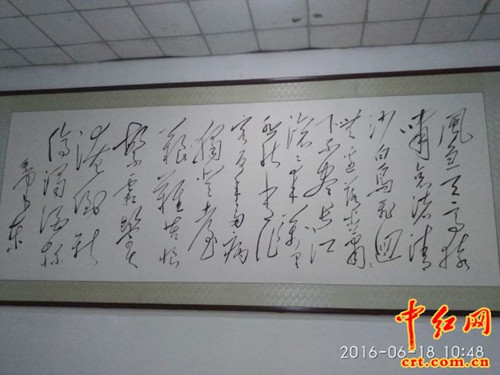 風急天高猿
嘯哀渚清
沙白鳥飛迴
無邊落木蕭蕭
下不盡長江
滚滚来萬里
悲秋常作
客百年多病
獨登臺
艱難苦恨
繁霜鬢
潦倒新
停濁酒杯
毛泽东
中红网
crt.com.cn
2016-06-18 10:48